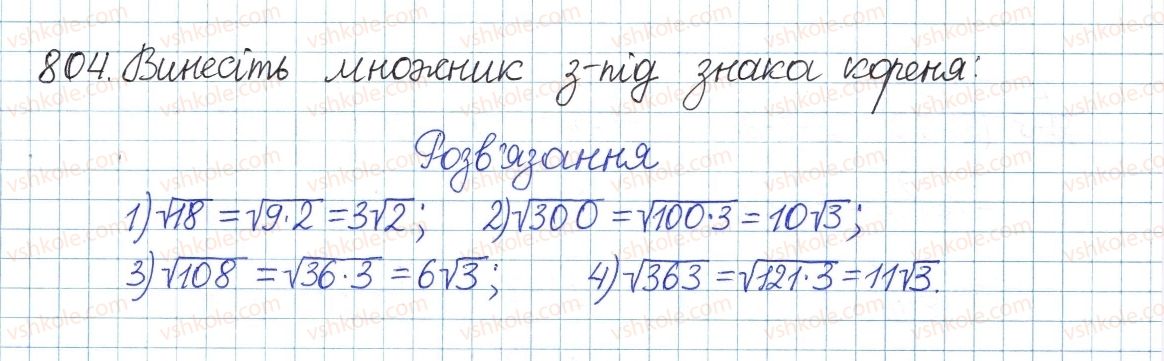 804. Винесіть множник з-під знака кореня:
Розв'язання
1) √18 = √9·2 = 3√2; 2) √300 = √100·3 = 10√3;
3) √108 = √36·3 = 6√3; 4) √363 = √121·3 = 11√3.